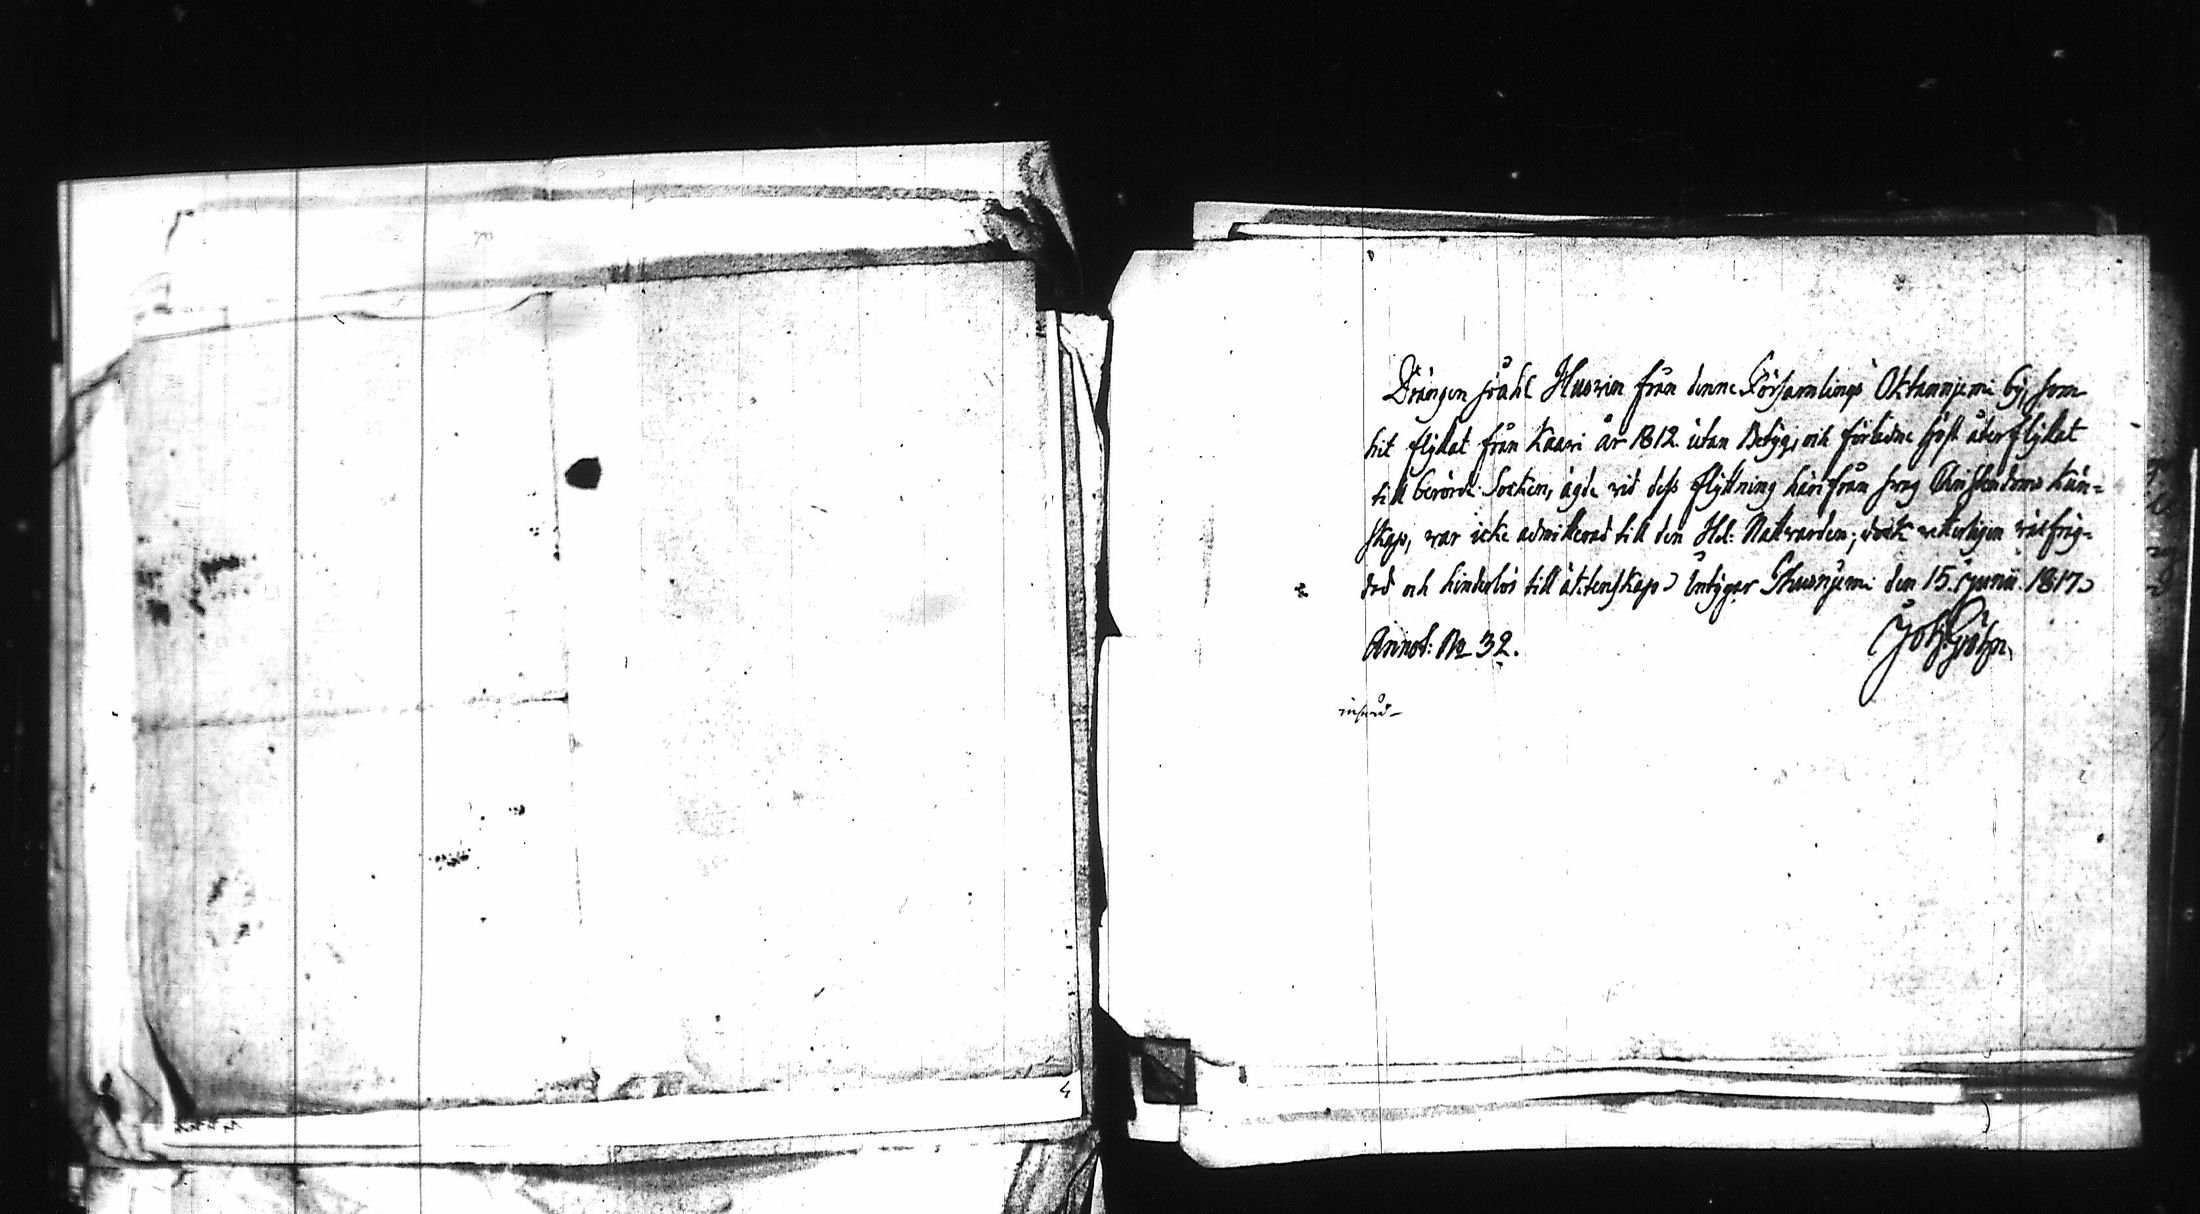 Drängen Påhl Huovin från denne Församlings Oktanniemi by, som
hit flyttat från Kaavi år 1812 utan Betyg, och förledne höst åter flyttat
till berörde Socken, ägde vid dess flyttning härifrån svag Christendoms kun-
skap, var icke admitterad till den Hel: Nattvarden; dock veterligen välfräg-
dad och hinderlös till äktenskap, intygar den 15 Junii 1817.
Annot: No 32. Joh. 
införd
4